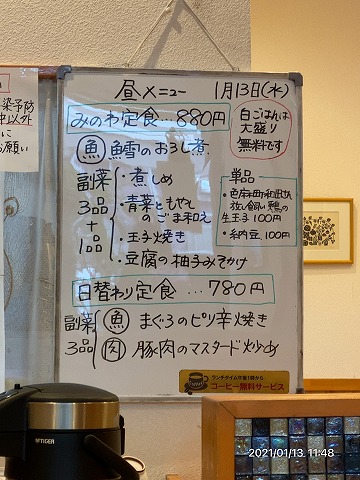 昼メニュー 1月13日(水)
みのわ定食…880円
白ごはんは
大盛り
無料です
魚 鱈のおろし煮
副菜
3品
+
1品
・煮しめ
・青菜ともやし
のごま和え
・玉子焼き
・豆腐の柚子みそかけ
単品
・色麻町和田さん
放し飼い鶏の
生玉子 100円
・納豆 100円
日替わり定食…780円
副菜
3品
魚 まぐろのピリ辛焼き
肉 豚肉のマスタード炒め
ランチタイム午後1時から
コーヒー無料サービス
染予防
中以外
に
お願い
TIGER
2021/01/13 11:48